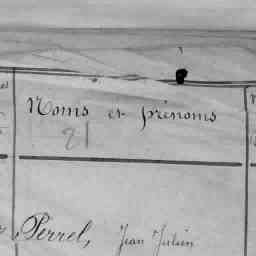 Noms et prénoms
21
Perrel, Jean Julien